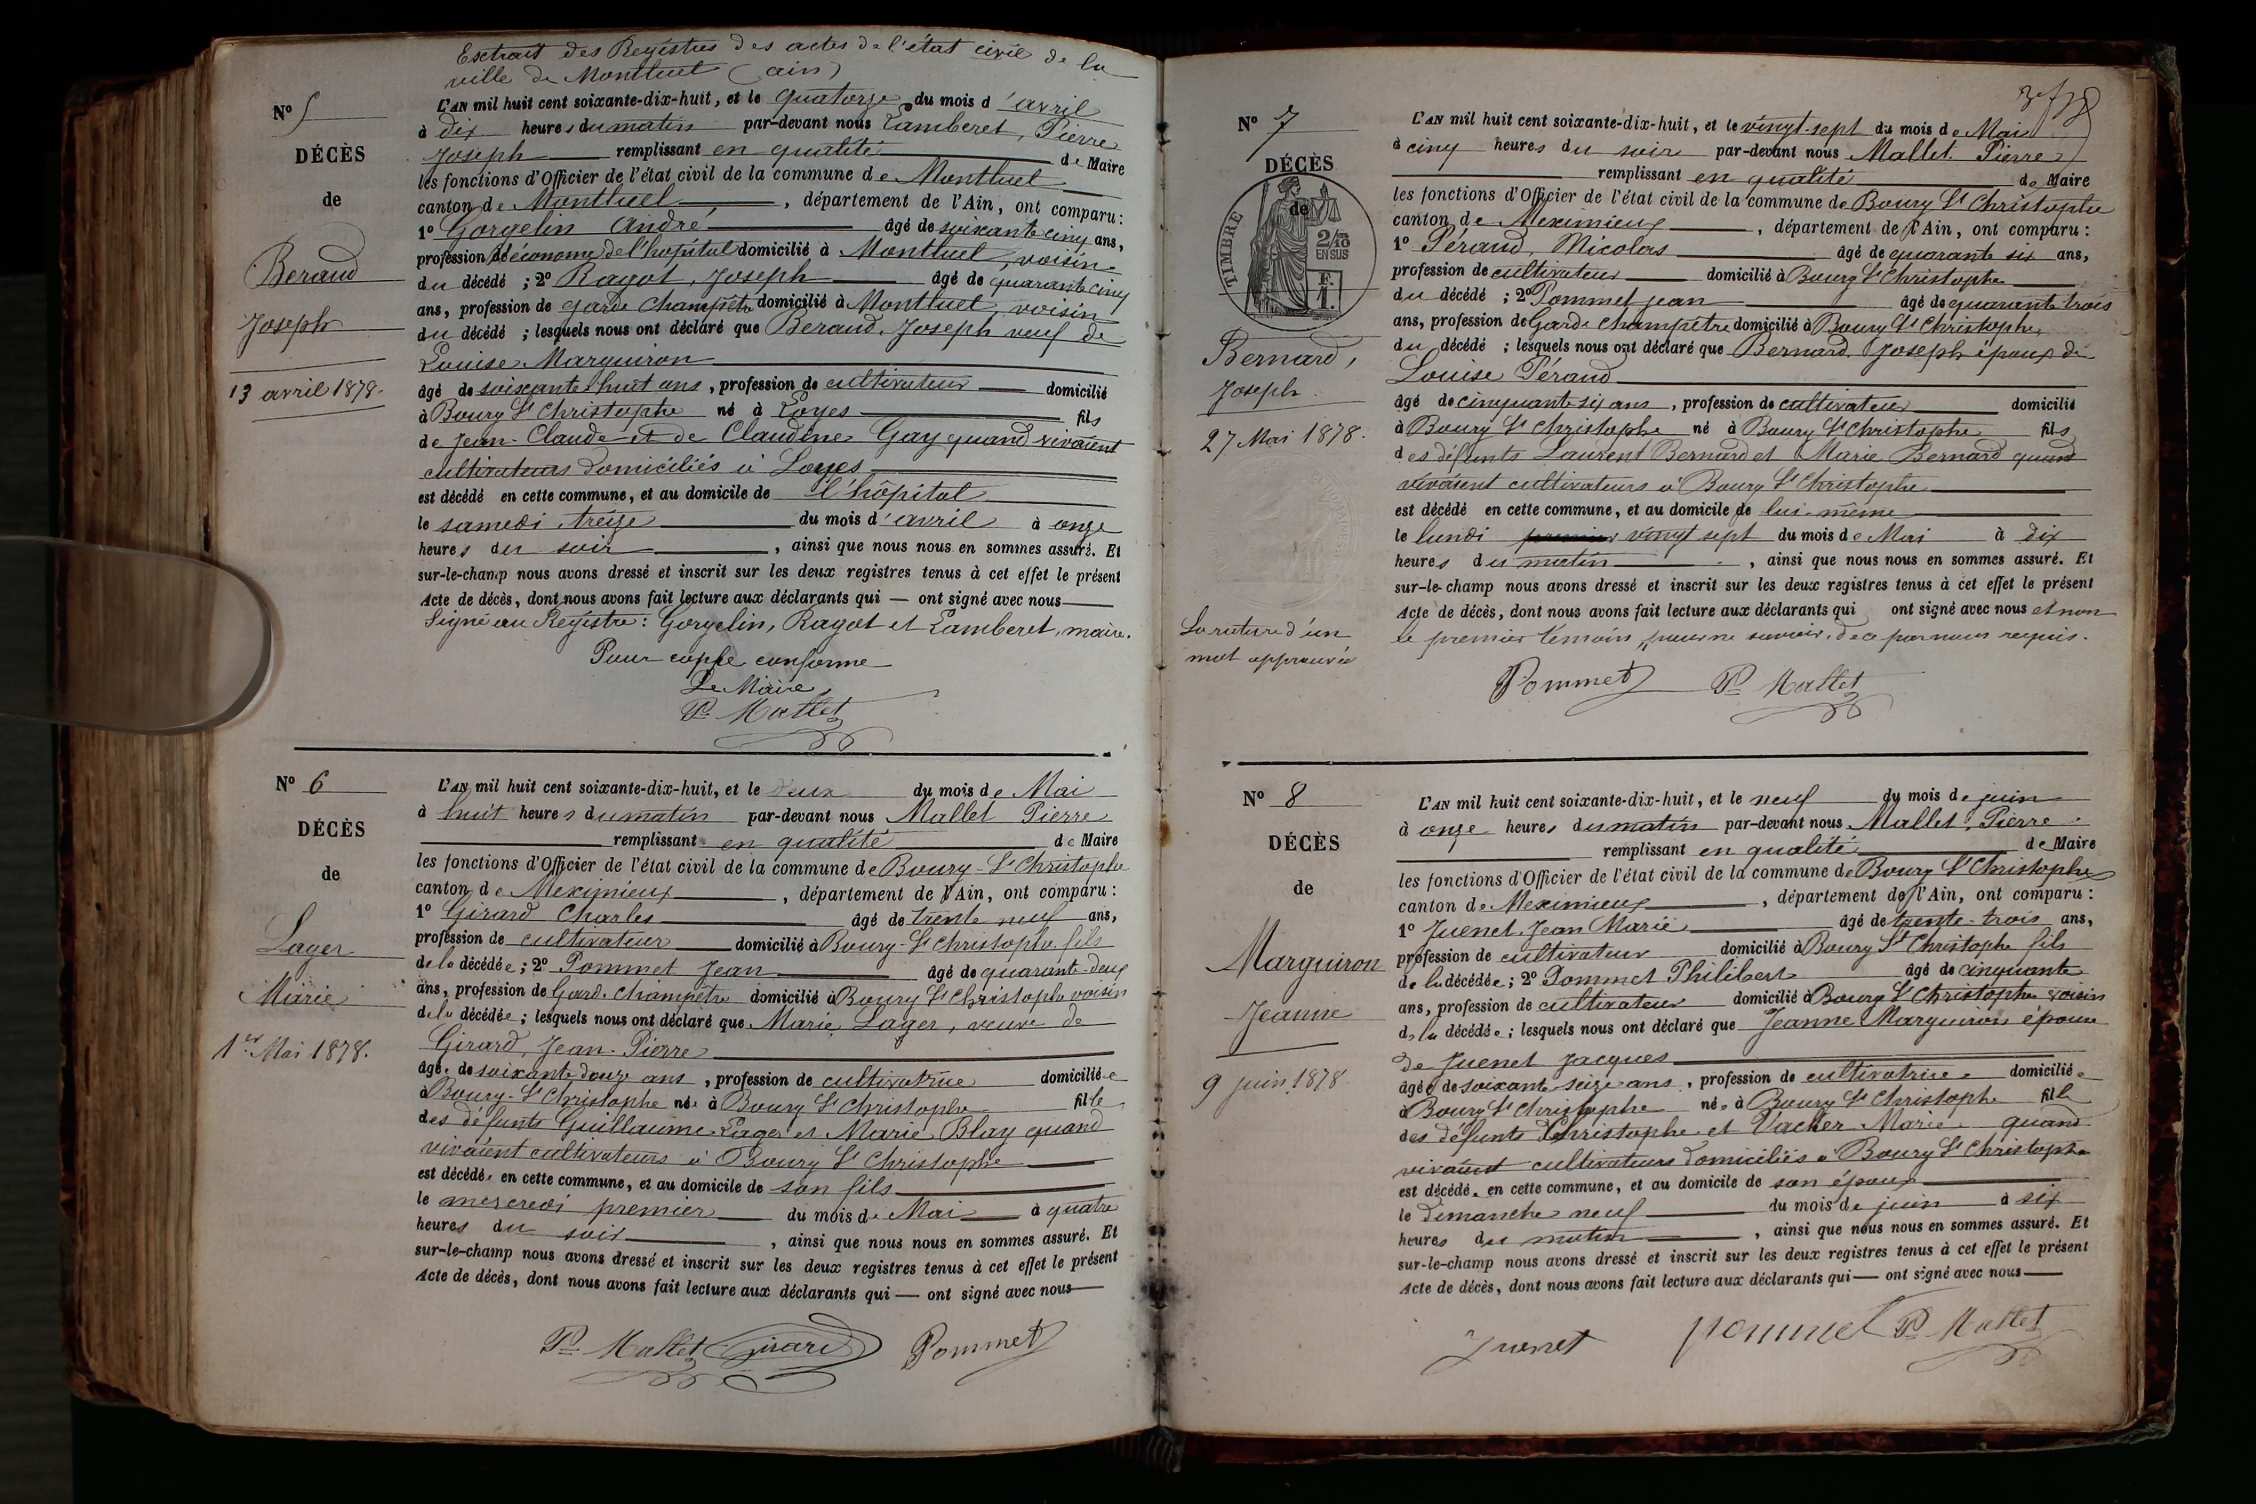 Extrait des Registres des actes de l'état civil de la
ville de Montluel (ain)
N° 5
DÉCÈS
de
Beraud
Joseph
13 avril 1878.
L'AN mil huit cent soixante-dix-huit, et le quatorze du mois d'avril
à dix heures du matin par-devant nous Lamberet, Pierre
Joseph remplissant en qualité de Maire
les fonctions d'Officier de l'état civil de la commune de Montluel
canton de Montluel, département de l'Ain, ont comparu :
1° Gorgelin André âgé de soixante cinq ans,
profession d'économe de l'hopital domicilié à Montluel, voisin
du décédé ; 2° Ragot, Joseph âgé de quarante cinq
ans, profession de garde champêtre domicilié à Montluel, voisin
du décédé ; lesquels nous ont déclaré que Beraud, Joseph veuf de
Louise Marguiron
âgé de soixante huit ans, profession de cultivateur domicilié
à Bourg St Christophe né à Loyes fils
de Jean-Claude et de Claudine Gay quand vivaient
cultivateurs domiciliés à Loyes
est décédé en cette commune, et au domicile de l'hôpital
le samedi treize du mois d'avril à onze
heures du soir, ainsi que nous nous en sommes assuré. Et
sur-le-champ nous avons dressé et inscrit sur les deux registres tenus à cet effet le présent
Acte de décès, dont nous avons fait lecture aux déclarants qui — ont signé avec nous
Signé au Registre : Gorgelin, Ragot et Lamberet, maire.
Pour copie conforme
Le Maire
P. Mallet
N° 6
DÉCÈS
de
Lager
Marie
1er Mai 1878.
L'AN mil huit cent soixante-dix-huit, et le deux du mois de Mai
à huit heures du matin par-devant nous Mallet Pierre
remplissant en qualité de Maire
les fonctions d'Officier de l'état civil de la commune de Bourg-St Christophe
canton de Meximieux, département de l'Ain, ont comparu :
1° Girard Charles âgé de trente neuf ans,
profession de cultivateur domicilié à Bourg-St Christophe fils
de la décédée ; 2° Pommet Jean âgé de quarante-deux
ans, profession de Garde Champêtre domicilié à Bourg St Christophe voisin
de la décédée ; lesquels nous ont déclaré que Marie Lager, veuve de
Girard, Jean-Pierre
âgée de soixante douze ans, profession de cultivatrice domiciliée
à Bourg-St Christophe née à Bourg St Christophe fille
des défunts Guillaume Lager et Marie Blay quand
vivaient cultivateurs à Bourg St Christophe
est décédée en cette commune, et au domicile de son fils
le mercredi premier du mois de Mai à quatre
heures du soir, ainsi que nous nous en sommes assuré. Et
sur-le-champ nous avons dressé et inscrit sur les deux registres tenus à cet effet le présent
Acte de décès, dont nous avons fait lecture aux déclarants qui — ont signé avec nous
P. Mallet Girard Pommet
N° 7
DÉCÈS
de
TIMBRE
2/10
EN SUS
F.
1.
Bernard,
Joseph
27 Mai 1878.
L'AN mil huit cent soixante-dix-huit, et le vingt-sept du mois de Mai
à cinq heures du soir par-devant nous Mallet Pierre
remplissant en qualité de Maire
les fonctions d'Officier de l'état civil de la commune de Bourg St Christophe
canton de Meximieux, département de l'Ain, ont comparu :
1° Péraud, Nicolas âgé de quarante six ans,
profession de cultivateur domicilié à Bourg St Christophe
du décédé ; 2° Pommet Jean âgé de quarante trois
ans, profession de Garde champêtre domicilié à Bourg St Christophe
du décédé ; lesquels nous ont déclaré que Bernard Joseph époux de
Louise Péraud
âgé de cinquante six ans, profession de cultivateur domicilié
à Bourg St Christophe né à Bourg St Christophe fils
des défunts Laurent Bernard et Marie Bernard quand
vivaient cultivateurs à Bourg St Christophe
est décédé en cette commune, et au domicile de lui-même
le lundi premier vingt sept du mois de Mai à dix
heures du matin, ainsi que nous nous en sommes assuré. Et
sur-le-champ nous avons dressé et inscrit sur les deux registres tenus à cet effet le présent
Acte de décès, dont nous avons fait lecture aux déclarants qui ont signé avec nous et non
le premier témoin pour ne savoir, de ce par nous requis.
La rature d'un
mot approuvée
Pommet P. Mallet
N° 8
DÉCÈS
de
Marguiron
Jeanne
9 juin 1878.
L'AN mil huit cent soixante-dix-huit, et le neuf du mois de juin
à onze heures du matin par-devant nous Mallet, Pierre
remplissant en qualité de Maire
les fonctions d'Officier de l'état civil de la commune de Bourg St Christophe
canton de Meximieux, département de l'Ain, ont comparu :
1° Juenet Jean Marie âgé de trente-trois ans,
profession de cultivateur domicilié à Bourg St Christophe fils
de la décédée ; 2° Pommet Philibert âgé de cinquante
ans, profession de cultivateur domicilié à Bourg St Christophe voisin
de la décédée ; lesquels nous ont déclaré que Jeanne Marguiron épouse
de Juenet Jacques
âgée de soixante seize ans, profession de cultivatrice domiciliée
à Bourg St Christophe née à Bourg St Christophe fille
des défunts Christophe et Vacher Marie quand
vivaient cultivateurs domiciliés à Bourg St Christophe
est décédée en cette commune, et au domicile de son époux
le dimanche neuf du mois de juin à six
heures du matin, ainsi que nous nous en sommes assuré. Et
sur-le-champ nous avons dressé et inscrit sur les deux registres tenus à cet effet le présent
Acte de décès, dont nous avons fait lecture aux déclarants qui — ont signé avec nous
Juenet pommet P. Mallet